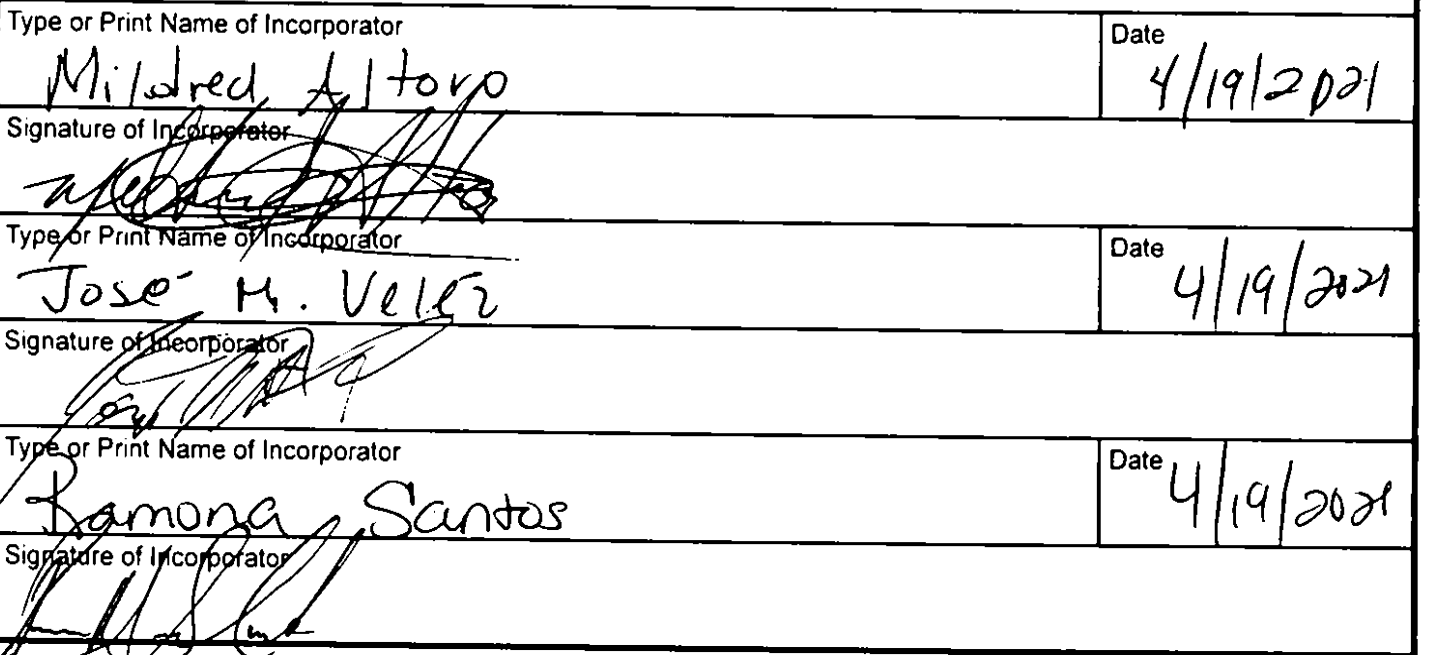 Type or Print Name of Incorporator
Date
Mildred Altoro
4/19/2021
Signature of Incorporator
Type or Print Name of Incorporator
Date
José M. Velez
4/19/2021
Signature of Incorporator
Type or Print Name of Incorporator
Date
Ramona Santos
4/19/2021
Signature of Incorporator